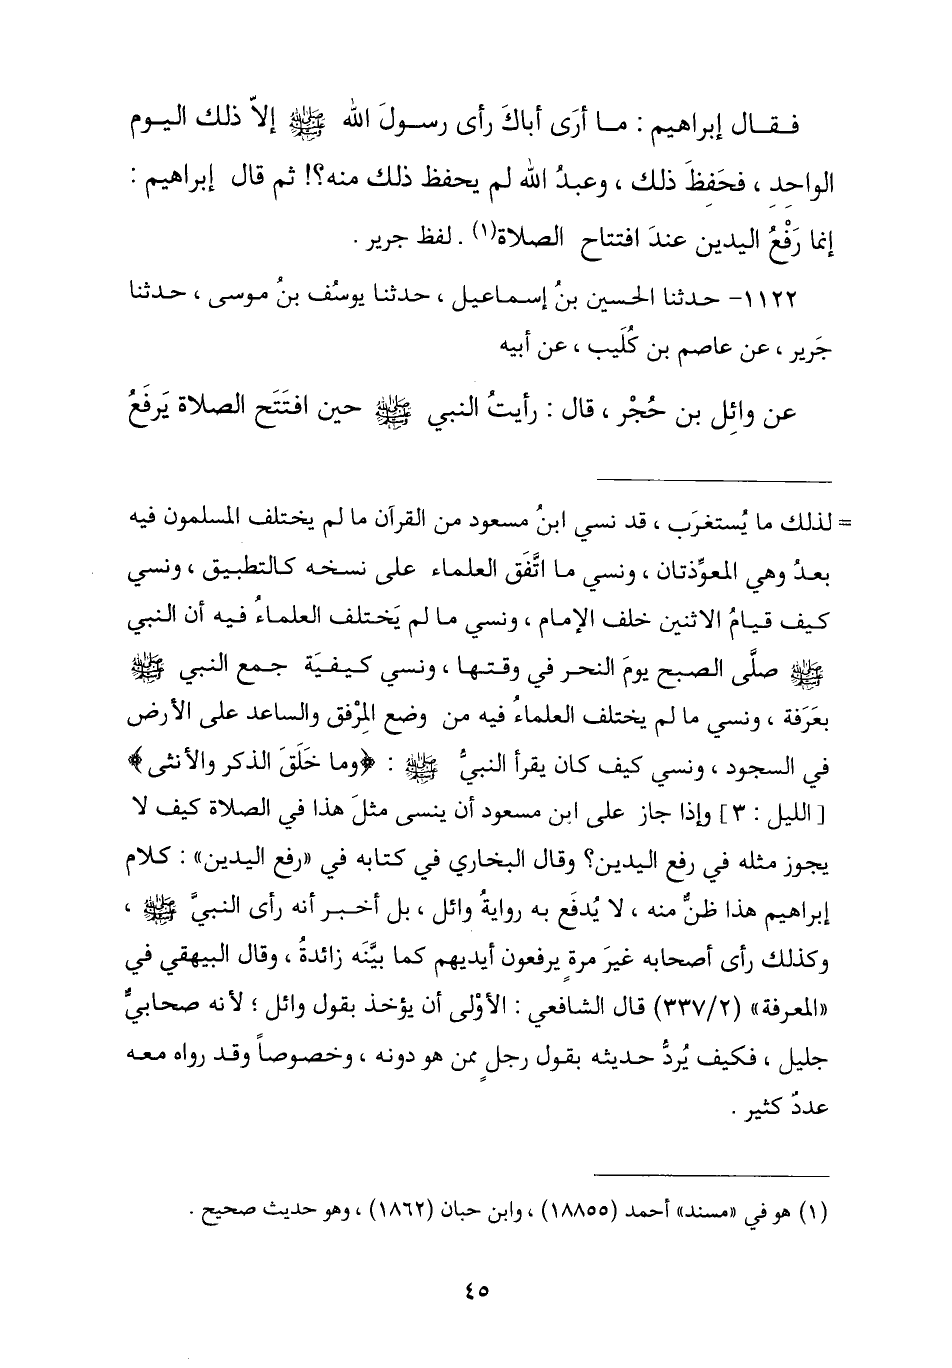 فـقـال إبراهيم : مـا أرَى أباكَ رأى رسـولَ الله ﷺ إلاّ ذلك اليـوم
الواحِدِ ، فحَفِظَ ذلك ، وعبدُ الله لم يحفظ ذلك منه؟! ثم قال إبراهيم :
إنما رَفْعُ اليدين عندَ افتتاح الصلاة(١) . لفظ جرير .
١١٢٢- حدثنا الحسين بنُ إسماعيل ، حدثنا يوسُف بنُ موسى ، حدثنا
جَرير ، عن عاصم بن كُلَيب ، عن أبيه
عن وائِل بن حُجْر ، قال : رأيتُ النبي ﷺ حين افتَتَح الصلاة يَرفَعُ
= لذلك ما يُستغرَب ، قد نسي ابنُ مسعود من القرآن ما لم يختلف المسلمون فيه
بعدُ وهي المعوِّذتان ، ونسي ما اتَّفَق العلماء على نسخه كالتطبيق ، ونسي
كيف قيامُ الاثنين خلف الإمام ، ونسي ما لم يَختلف العلماءُ فيه أن النبي
ﷺ صلَّى الصبح يومَ النحر في وقتها ، ونسي كيفيَة جمع النبي ﷺ
بعَرَفة ، ونسي ما لم يختلف العلماءُ فيه من وضع المِرْفق والساعد على الأرض
في السجود ، ونسي كيف كان يقرأ النبيُّ ﷺ : ﴿وما خَلَقَ الذكر والأنثى﴾
[الليل : ٣] وإذا جاز على ابن مسعود أن ينسى مثلَ هذا في الصلاة كيف لا
يجوز مثله في رفع اليدين؟ وقال البخاري في كتابه في «رفع اليدين» : كلام
إبراهيم هذا ظنٌّ منه ، لا يُدفَع به روايةُ وائل ، بل أخبر أنه رأى النبيَّ ﷺ ،
وكذلك رأى أصحابه غيرَ مرةٍ يرفعون أيديهم كما بيَّنَه زائدةُ ، وقال البيهقي في
«المعرفة» (٣٣٧/٢) قال الشافعي : الأوْلى أن يؤخذ بقول وائل ؛ لأنه صحابيٌّ
جليل ، فكيف يُردُّ حديثه بقول رجلٍ ممن هو دونه ، وخصوصاً وقد رواه معه
عددٌ كثير .
(١) هو في «مسند» أحمد (١٨٨٥٥) ، وابن حبان (١٨٦٢) ، وهو حديث صحيح .
٤٥